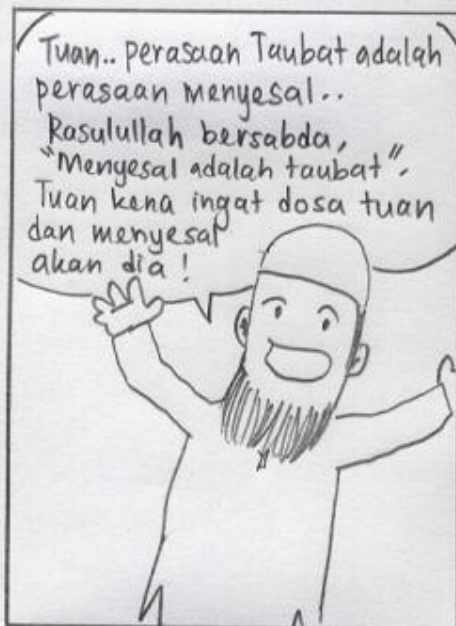 Tuan.. perasaan Taubat adalah
perasaan menyesal..
Rasulullah bersabda,
"Menyesal adalah taubat".
Tuan kena ingat dosa tuan
dan menyesal
akan dia!